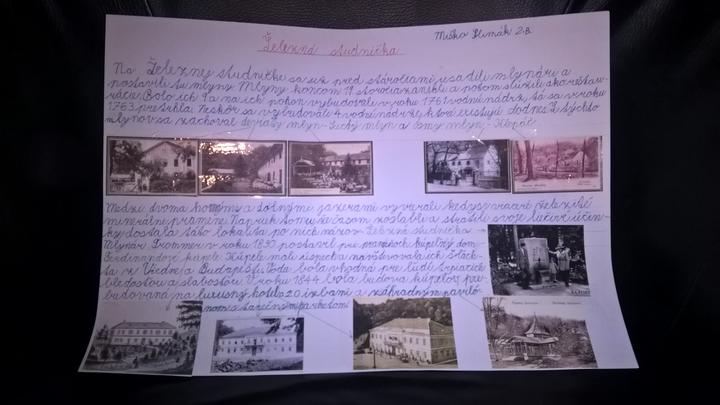 Miško Slimák 2.B
Železná studnička
Na Železnej studničke sa už pred stáročiami usadili mlynári a
postavili tu mlyny. Mlyny koncom 19. storočia zanikli a potom slúžili ako reštau-
rácie. Bolo ich 9 a na ich pohon vybudovali v roku 1761 vodnú nádrž, tá sa v roku
1763 pretrhla. Neskôr sa vybudovali 4 vodné nádrže, ktoré existujú dodnes. Z týchto
mlynov sa zachoval deviaty mlyn - Suchý mlyn a ôsmy mlyn - Klepáč.
Medzi dvoma hornými a dolnými jazerami vyvierali kedysi viaceré železité
minerálne pramene. Napriek tomu že časom zoslabli a stratili svoje liečivé účin-
ky dostala táto lokalita po nich názov Železná studnička.
Mlynár Prommer v roku 1830 postavil pri prameňoch kúpeľný dom -
Ferdinandove kúpele. Kúpele mali úspech a navštevovala ich šľach-
ta z Viedne a Budapešti. Voda bola vhodná pre ľudí trpiacich
bledosťou a slabosťou. V roku 1844 bola budova kúpeľov pre-
budovaná na luxusný hotel s 20 izbami a záhradným paviló-
nom s tanečným parketom.